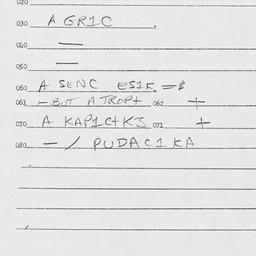 020
030 A GR1C .
040 —
050 —
060 A SENC ES1K =
061 – BUT A TROP+ 062 +
070 A KAP1C+K3 071 +
080 – / PUDAC1 KA